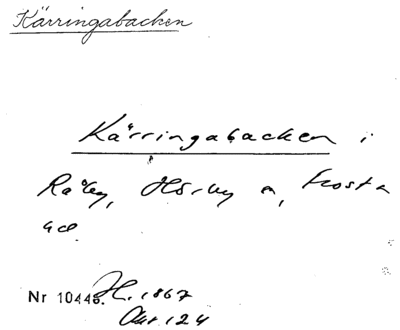 Kärringabacken
Kärringabacken i
Råby, Hörby s, Frosta
hd
Nr 10445. H. 1867
Okt 124